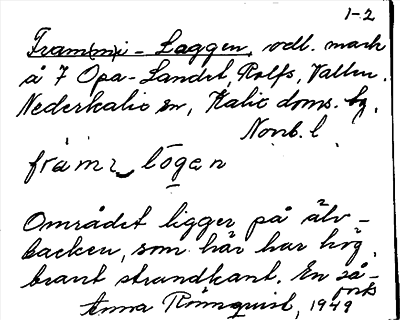 1-2
Fram(m)i-Laggen, odl. mark
å 7 Opa-Landet, Rolfs, Vallen.
Nederkalix sn, Kalix doms. bg,
Norrb. l.
främ ı‿lo̱gen
Området ligger på älv-
backen, som här har hög,
brant strandkant. En så-
fors
Anna Rönnqvist, 1949